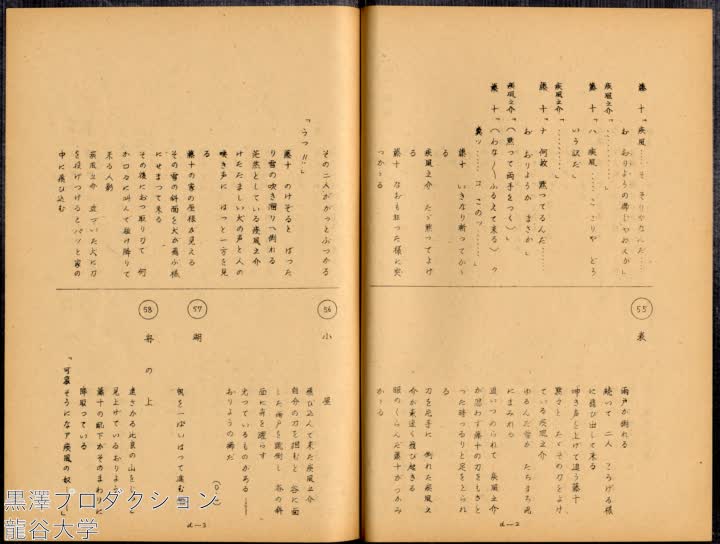 藤 十「疾風……そ そりやなんだ……
お おりようの帯じやねえか」
疾風之介「…………」
藤 十「ハ 疾風……こ こりや どう
いう訳だ」
疾風之介「…………」
藤 十「ナ 何故 黙つてるんだ……
お おりようが まさか」
疾風之介「（黙つて両手をつく）」
藤 十「（わな〳〵ふるえて来る）ク
糞ッ……コ このッ……」
藤十 いきなり斬つてかゝ
る
疾風之介 たゞ黙つてよけ
る
藤十 なおも狂つた様に突
かゝる
55 表
雨戸が倒れる
続いて 二人 ころげる様
に飛び出して来る
呻き声を上げて追う藤十
黙々と たゞその刀をよけ
ている疾風之介
ゆるんだ雪が たちまち泥
にまみれる
追いつめられて 疾風之介
が思わず藤十の刀をもぎと
つた時つるりと足をとられ
刀を片手に 倒れた疾風之
介が素速く飛び起きる
眼のくらんだ藤十がつかみ
かゝる
d—2
その二人がかつとぶつかる
「うつ!!」
藤十 のけぞると ばつた
り雪の吹き溜りへ倒れる
茫然としている疾風之介
けたたましい犬の声と人の
喚き声に はつと一方を見
る
藤十の家の屋根が見える
その雪の斜面を犬が飛ぶ様
にせまつて来る
その後におつ取り刀で 何
か口々に叫んで駈け降りて
来る人影
疾風之介 近づいた犬に刀
を投げつけるとパッと家の
中に飛び込む
56 小 屋
飛び込んで来た疾風之介
自分の刀を掴むと 谷に面
した雨戸を蹴倒し 谷の斜
面に身を躍らす
光つているものがある——
おりようの櫛だ
（O・L）
57 湖
帆を一ぱいはつて進む
58 舟 の 上
遠ざかる比良の山をじつと
見上げているおりよう
藤十の配下がそのまわりに
陣取つている
「可哀そうになア疾風の奴
d—3
黒澤プロダクション
龍谷大学